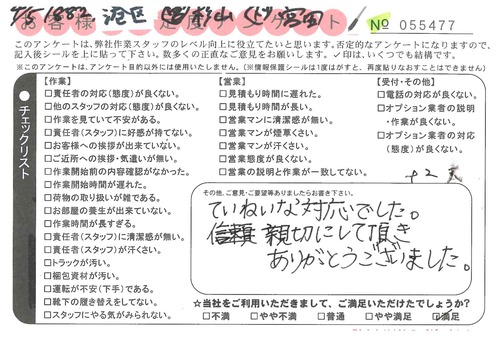 7/5 1882 港区
お客様満足度アンケート No 055477
このアンケートは、弊社作業スタッフのレベル向上に役立てたいと思います。否定的なアンケートになりますので、
記入後シールを上に貼って下さい。数多くの正直なご意見をお願いします。✓印は、いくつでも結構です。
※このアンケートは、アンケート目的以外には使用いたしません。(※情報保護シールは1度はがすと、再度貼りなおすことはできません)
チェックリスト
【作業】
□責任者の対応(態度)が良くない。
□他のスタッフの対応(態度)が良くない。
□作業を見ていて不安がある。
□責任者(スタッフ)に好感が持てない。
□お客様への挨拶が出来ていない。
□ご近所への挨拶・気遣いが無い。
□作業開始前の内容確認がなかった。
□作業開始時間が遅れた。
□荷物の取り扱いが雑である。
□お部屋の養生が出来ていない。
□作業時間が長すぎる。
□責任者(スタッフ)に清潔感が無い。
□責任者(スタッフ)が汗くさい。
□トラックが汚い。
□梱包資材が汚い。
□運転が不安(下手)である。
□靴下の履き替えをしてない。
□スタッフにやる気がみられない。
【営業】
□見積もり時間に遅れた。
□見積もり時間が長い。
□営業マンに清潔感が無い。
□営業マンが煙草くさい。
□営業マンが汗くさい。
□営業態度が良くない。
□営業の説明と作業が一致してない。
【受付・その他】
□電話の対応が良くない。
□オプション業者の説明
・作業が良くない。
□オプション業者の対応
(態度)が良くない。
その他、ご意見・ご要望等ありましたらお書き下さい。
ていねいな対応でした。
信頼 親切にして頂き
ありがとうございました。
☆当社をご利用いただきまして、ご満足いただけたでしょうか?
□不満 □やや不満 □普通 □やや満足 ☑満足